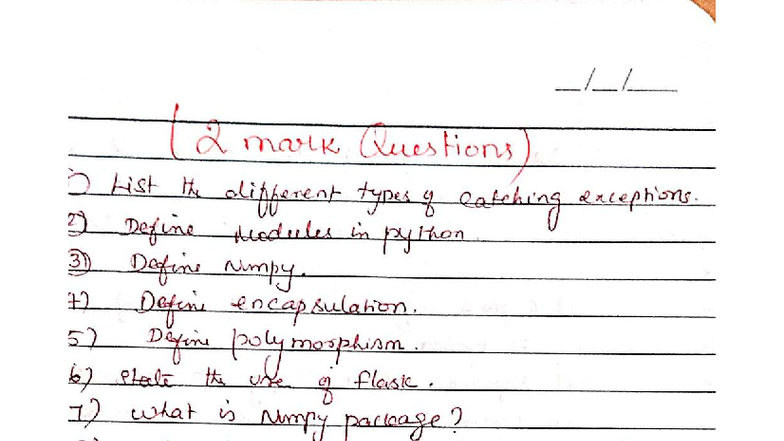 (2 mark Questions)
1) List the different types of catching exceptions.
2) Define Modules in python
3) Define Numpy.
4) Define encapsulation.
5) Define polymorphism.
6) State the use of flask.
7) What is Numpy package?